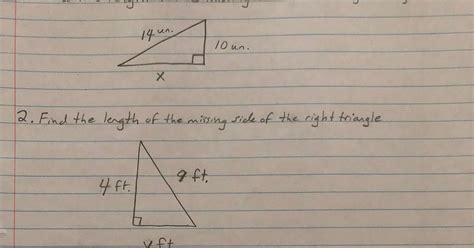 14 un.
10 un.
x
2. Find the length of the missing side of the right triangle
4 ft.
9 ft.
ft